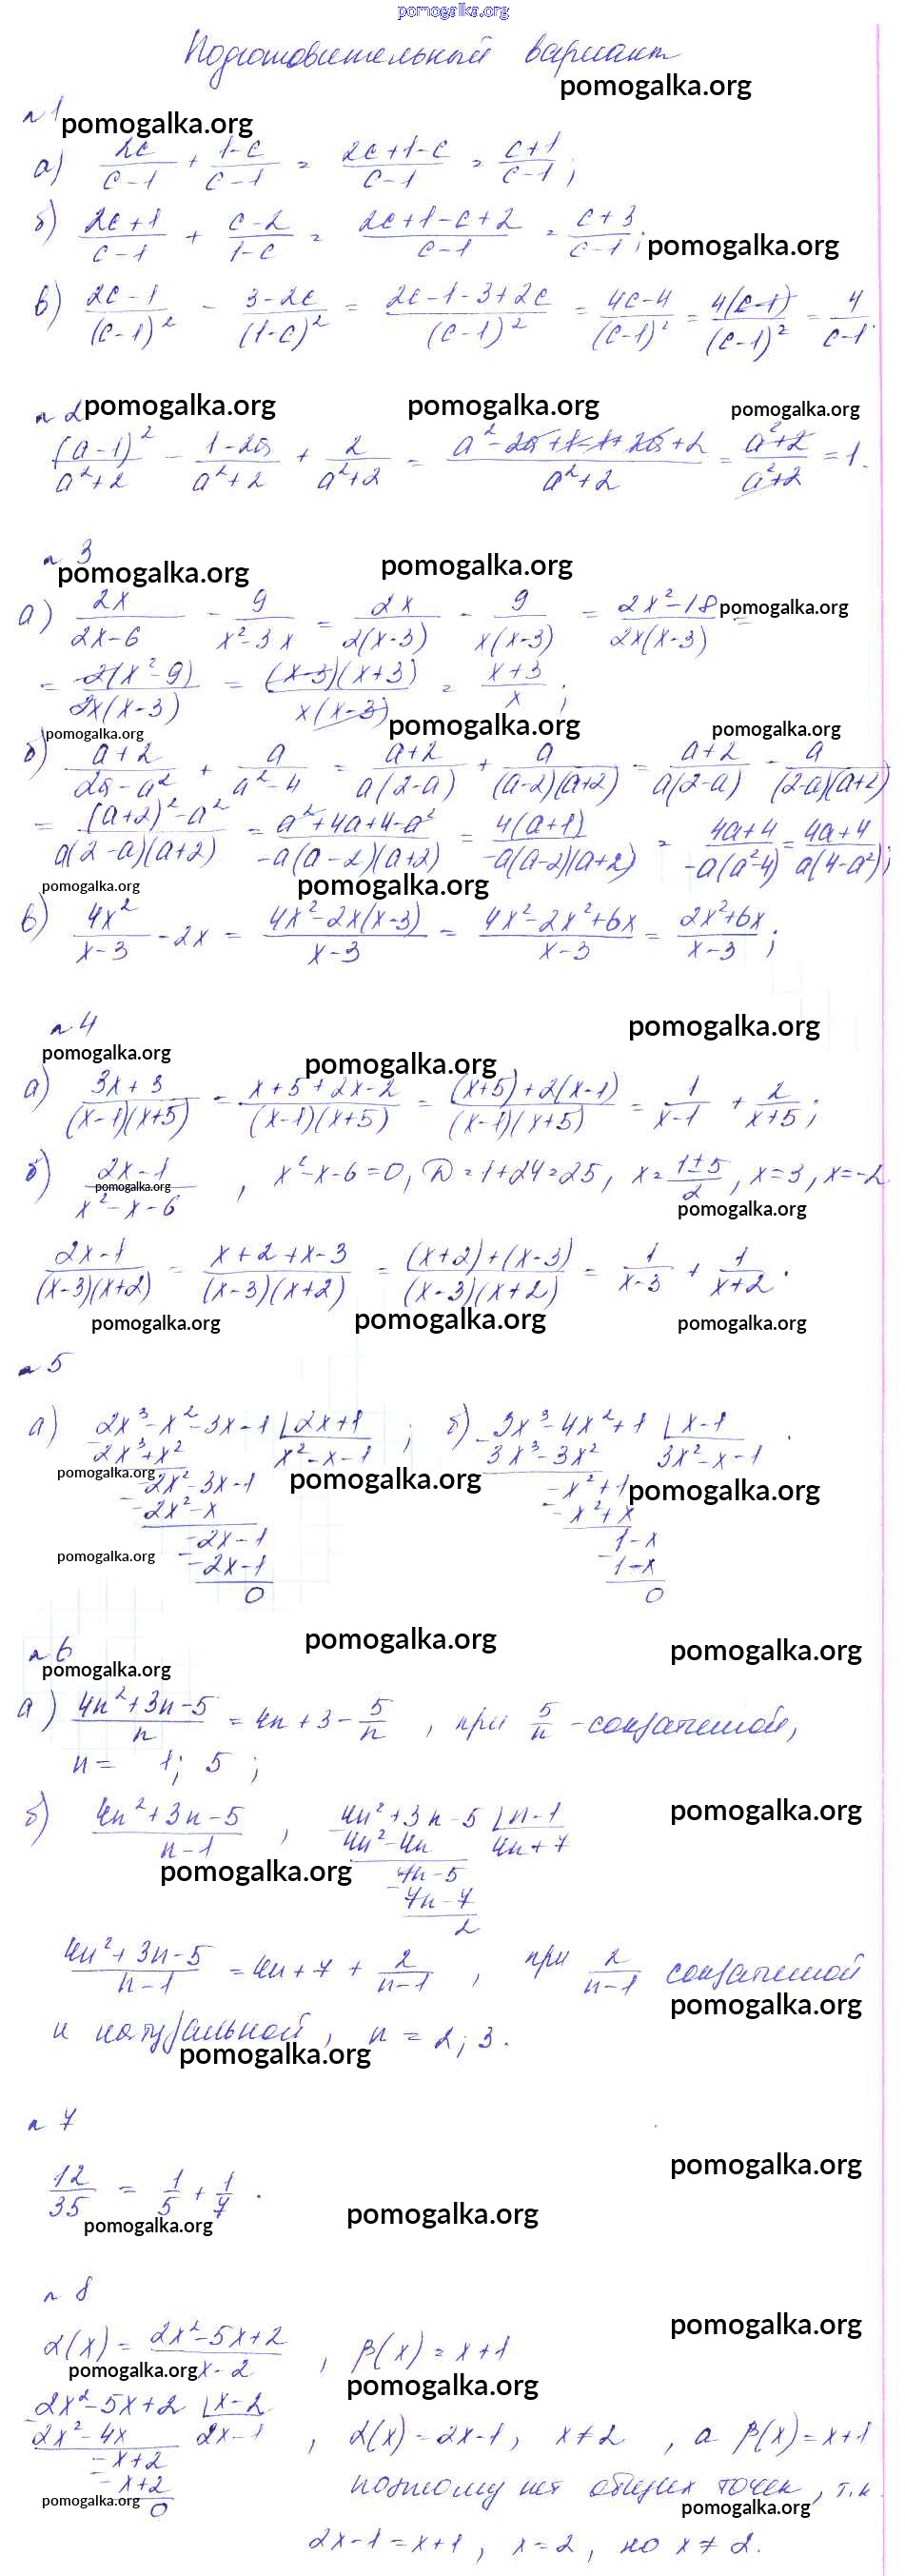 pomogalka.org
Подготовительный вариант
pomogalka.org
n 1
pomogalka.org
а) 2c/(c-1) + (1-c)/(c-1) = (2c+1-c)/(c-1) = (c+1)/(c-1);
б) (2c+1)/(c-1) + (c-2)/(1-c) = (2c+1-c+2)/(c-1) = (c+3)/(c-1); pomogalka.org
в) (2c-1)/(c-1)² - (3-2c)/(1-c)² = (2c-1-3+2c)/(c-1)² = (4c-4)/(c-1)² = 4(c-1)/(c-1)² = 4/(c-1).
n 2 pomogalka.org pomogalka.org pomogalka.org
(a-1)²/(a²+2) - (1-2a)/(a²+2) + 2/(a²+2) = (a²-2a+1-1+2a+2)/(a²+2) = (a²+2)/(a²+2) = 1.
n 3
pomogalka.org pomogalka.org
а) 2x/(2x-6) - 9/(x²-3x) = 2x/2(x-3) - 9/x(x-3) = (2x²-18)/2x(x-3) = pomogalka.org
= 2(x²-9)/2x(x-3) = (x-3)(x+3)/x(x-3) = (x+3)/x;
pomogalka.org pomogalka.org pomogalka.org
б) (a+2)/(2a-a²) + a/(a²-4) = (a+2)/a(2-a) + a/(a-2)(a+2) = (a+2)/a(2-a) - a/(2-a)(a+2)
= ((a+2)²-a²)/a(2-a)(a+2) = (a²+4a+4-a²)/-a(a-2)(a+2) = 4(a+1)/-a(a-2)(a+2) = (4a+4)/-a(a²-4) = (4a+4)/a(4-a²);
pomogalka.org pomogalka.org
в) 4x²/(x-3) - 2x = (4x²-2x(x-3))/(x-3) = (4x²-2x²+6x)/(x-3) = (2x²+6x)/(x-3);
n 4 pomogalka.org
pomogalka.org pomogalka.org
а) (3x+3)/(x-1)(x+5) = (x+5+2x-2)/(x-1)(x+5) = ((x+5)+2(x-1))/(x-1)(x+5) = 1/(x-1) + 2/(x+5);
б) (2x-1)/(x²-x-6), x²-x-6=0, D=1+24=25, x=(1±5)/2, x=3, x=-2.
pomogalka.org pomogalka.org
(2x-1)/(x-3)(x+2) = (x+2+x-3)/(x-3)(x+2) = ((x+2)+(x-3))/(x-3)(x+2) = 1/(x-3) + 1/(x+2).
pomogalka.org pomogalka.org pomogalka.org
n 5
а) 2x³-x²-3x-1 | 2x+1 ; б) 3x³-4x²+1 | x-1 .
2x³+x² x²-x-1 3x³-3x² 3x²-x-1
pomogalka.org pomogalka.org pomogalka.org
-2x²-3x-1 -x²+1
-2x²-x -x²+x
-2x-1 1-x
pomogalka.org -2x-1 1-x
0 0
n 6 pomogalka.org pomogalka.org
pomogalka.org
а) (4n²+3n-5)/n = 4n+3-5/n, при 5/n - сократимой,
n = 1; 5;
б) (4n²+3n-5)/(n-1), 4n²+3n-5 | n-1 pomogalka.org
4n²-4n 4n+7
pomogalka.org 7n-5
7n-7
2
(4n²+3n-5)/(n-1) = 4n+7+2/(n-1), при 2/(n-1) сократимой
pomogalka.org
и натуральной, n = 2; 3.
pomogalka.org
n 7
pomogalka.org
12/35 = 1/5 + 1/7.
pomogalka.org pomogalka.org
n 8
pomogalka.org
α(x) = (2x²-5x+2)/(x-2), β(x) = x+1
pomogalka.org pomogalka.org
2x²-5x+2 | x-2
2x²-4x 2x-1 , α(x)=2x-1, x≠2, а β(x)=x+1
-x+2
-x+2 поэтому нет общих точек, т.к
pomogalka.org 0 pomogalka.org
2x-1=x+1, x=2, но x≠2.